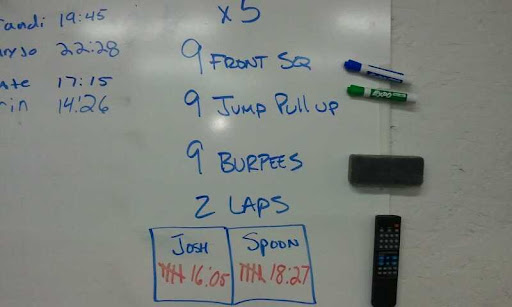 x5
andi 19:45
22:28
17:15
in 14:26
9 FRONT SQ
9 JUMP PULL UP
9 BURPEES
2 LAPS
JOSH SPOON
16:05 18:27